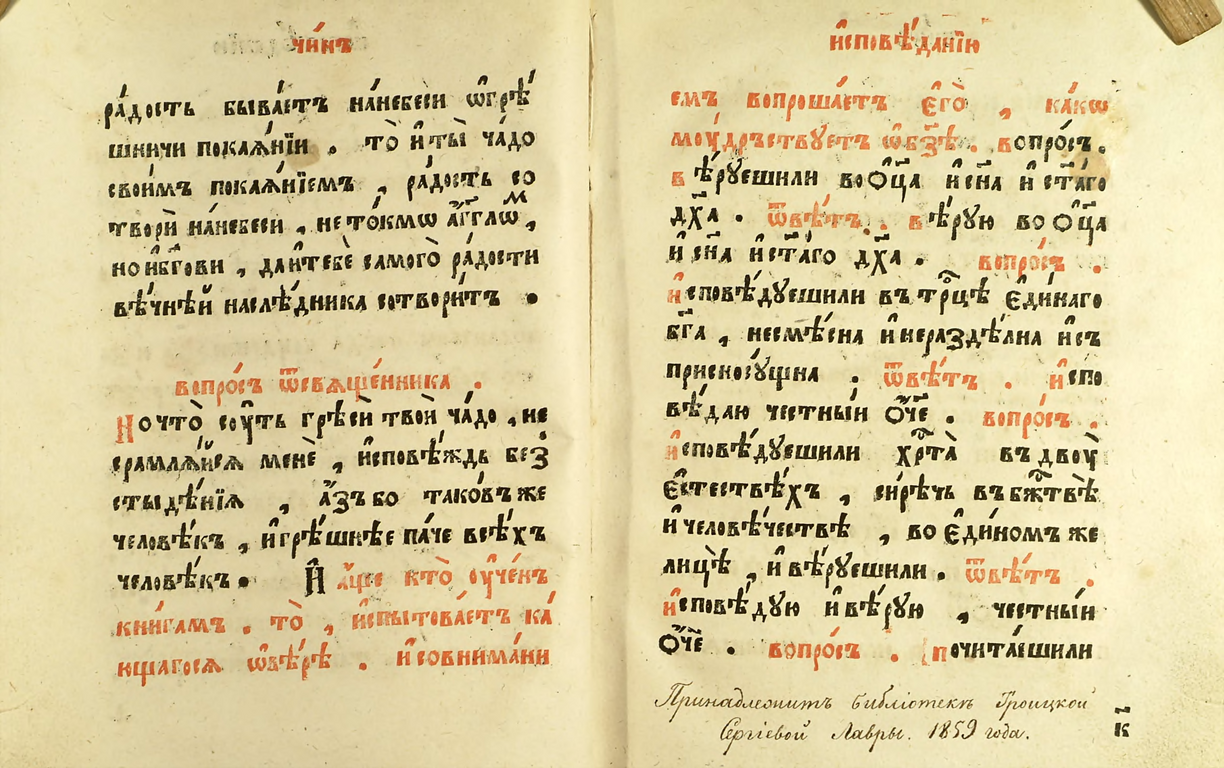 чи́нъ
ра́дость быва́етъ на́небеси ѡ҆грѣ́
шничи покаѧ́нїи . то̀ и҆ты̀ ча́до
свои́мъ покаѧ́нїемъ , ра́дость со
твори̑ на́небеси , не то́кмѡ а҆́гг҃лѡм ,
но и҆бг҃ови , да и҆тебѐ самого̀ ра́дости
вѣ́чнѣй наслѣ́дника сотвори́тъ .
вопро́съ ѿсвѧще́нника .
Но что̀ сꙋ́ть грѣси̑ твои̑ ча́до , не
срамлѧ́йсѧ менѐ , и҆сповѣ́ждь без̾
стыдѣ́нїѧ , а҆́зъ бо тако́въ же
человѣ́къ , и҆грѣ́шнѣе па́че всѣ́хъ
человѣ́къ . И҆ а҆́ще кто̀ ᲂу҆че́нъ
кни́гамъ . то̀ , и҆спытова́етъ ка́
ющагосѧ ѡ҆вѣ́рѣ . и҆ совнима́ни
и҆сповѣ́данїю
емъ вопроша́етъ є҆го̀ , ка́кѡ
моу́дръствꙋетъ ѡ҆бз҃ѣ . вопро́съ .
вѣ́рꙋешили во Ѻц҃а и҆ сн҃а и҆ ст҃а́го
дх҃а . ѿвѣ́тъ . вѣ́рꙋю во Ѻц҃а
и҆ сн҃а и҆ ст҃а́го дх҃а . вопро́съ .
и҆сповѣ́дꙋешили въ трⷪ҇цѣ є҆ди́наго
бг҃а , несмѣ́сна и҆ нераздѣ́лна и҆ съ
присносꙋ́щна . ѿвѣ́тъ . и҆спо
вѣ́даю честны́и Ѻ҆́ч҃е . вопро́съ .
и҆сповѣ́дꙋешили хрⷭ҇та̀ въ двоꙋ̀
є҆стествѣ́хъ , си́рѣчь въ бжⷭ҇твѣ̀
и҆ человѣ́чествѣ , во є҆ди́номъ же
лицѣ̀ , и҆ вѣ́рꙋешили . ѿвѣ́тъ .
и҆сповѣ́дꙋю и҆ вѣ́рꙋю , честны́и
Ѻ҆́ч҃е . вопро́съ . почита́ешили
Принадлежитъ библіотекѣ Троицкой
Сергіевой Лавры. 1859 года.
к҃